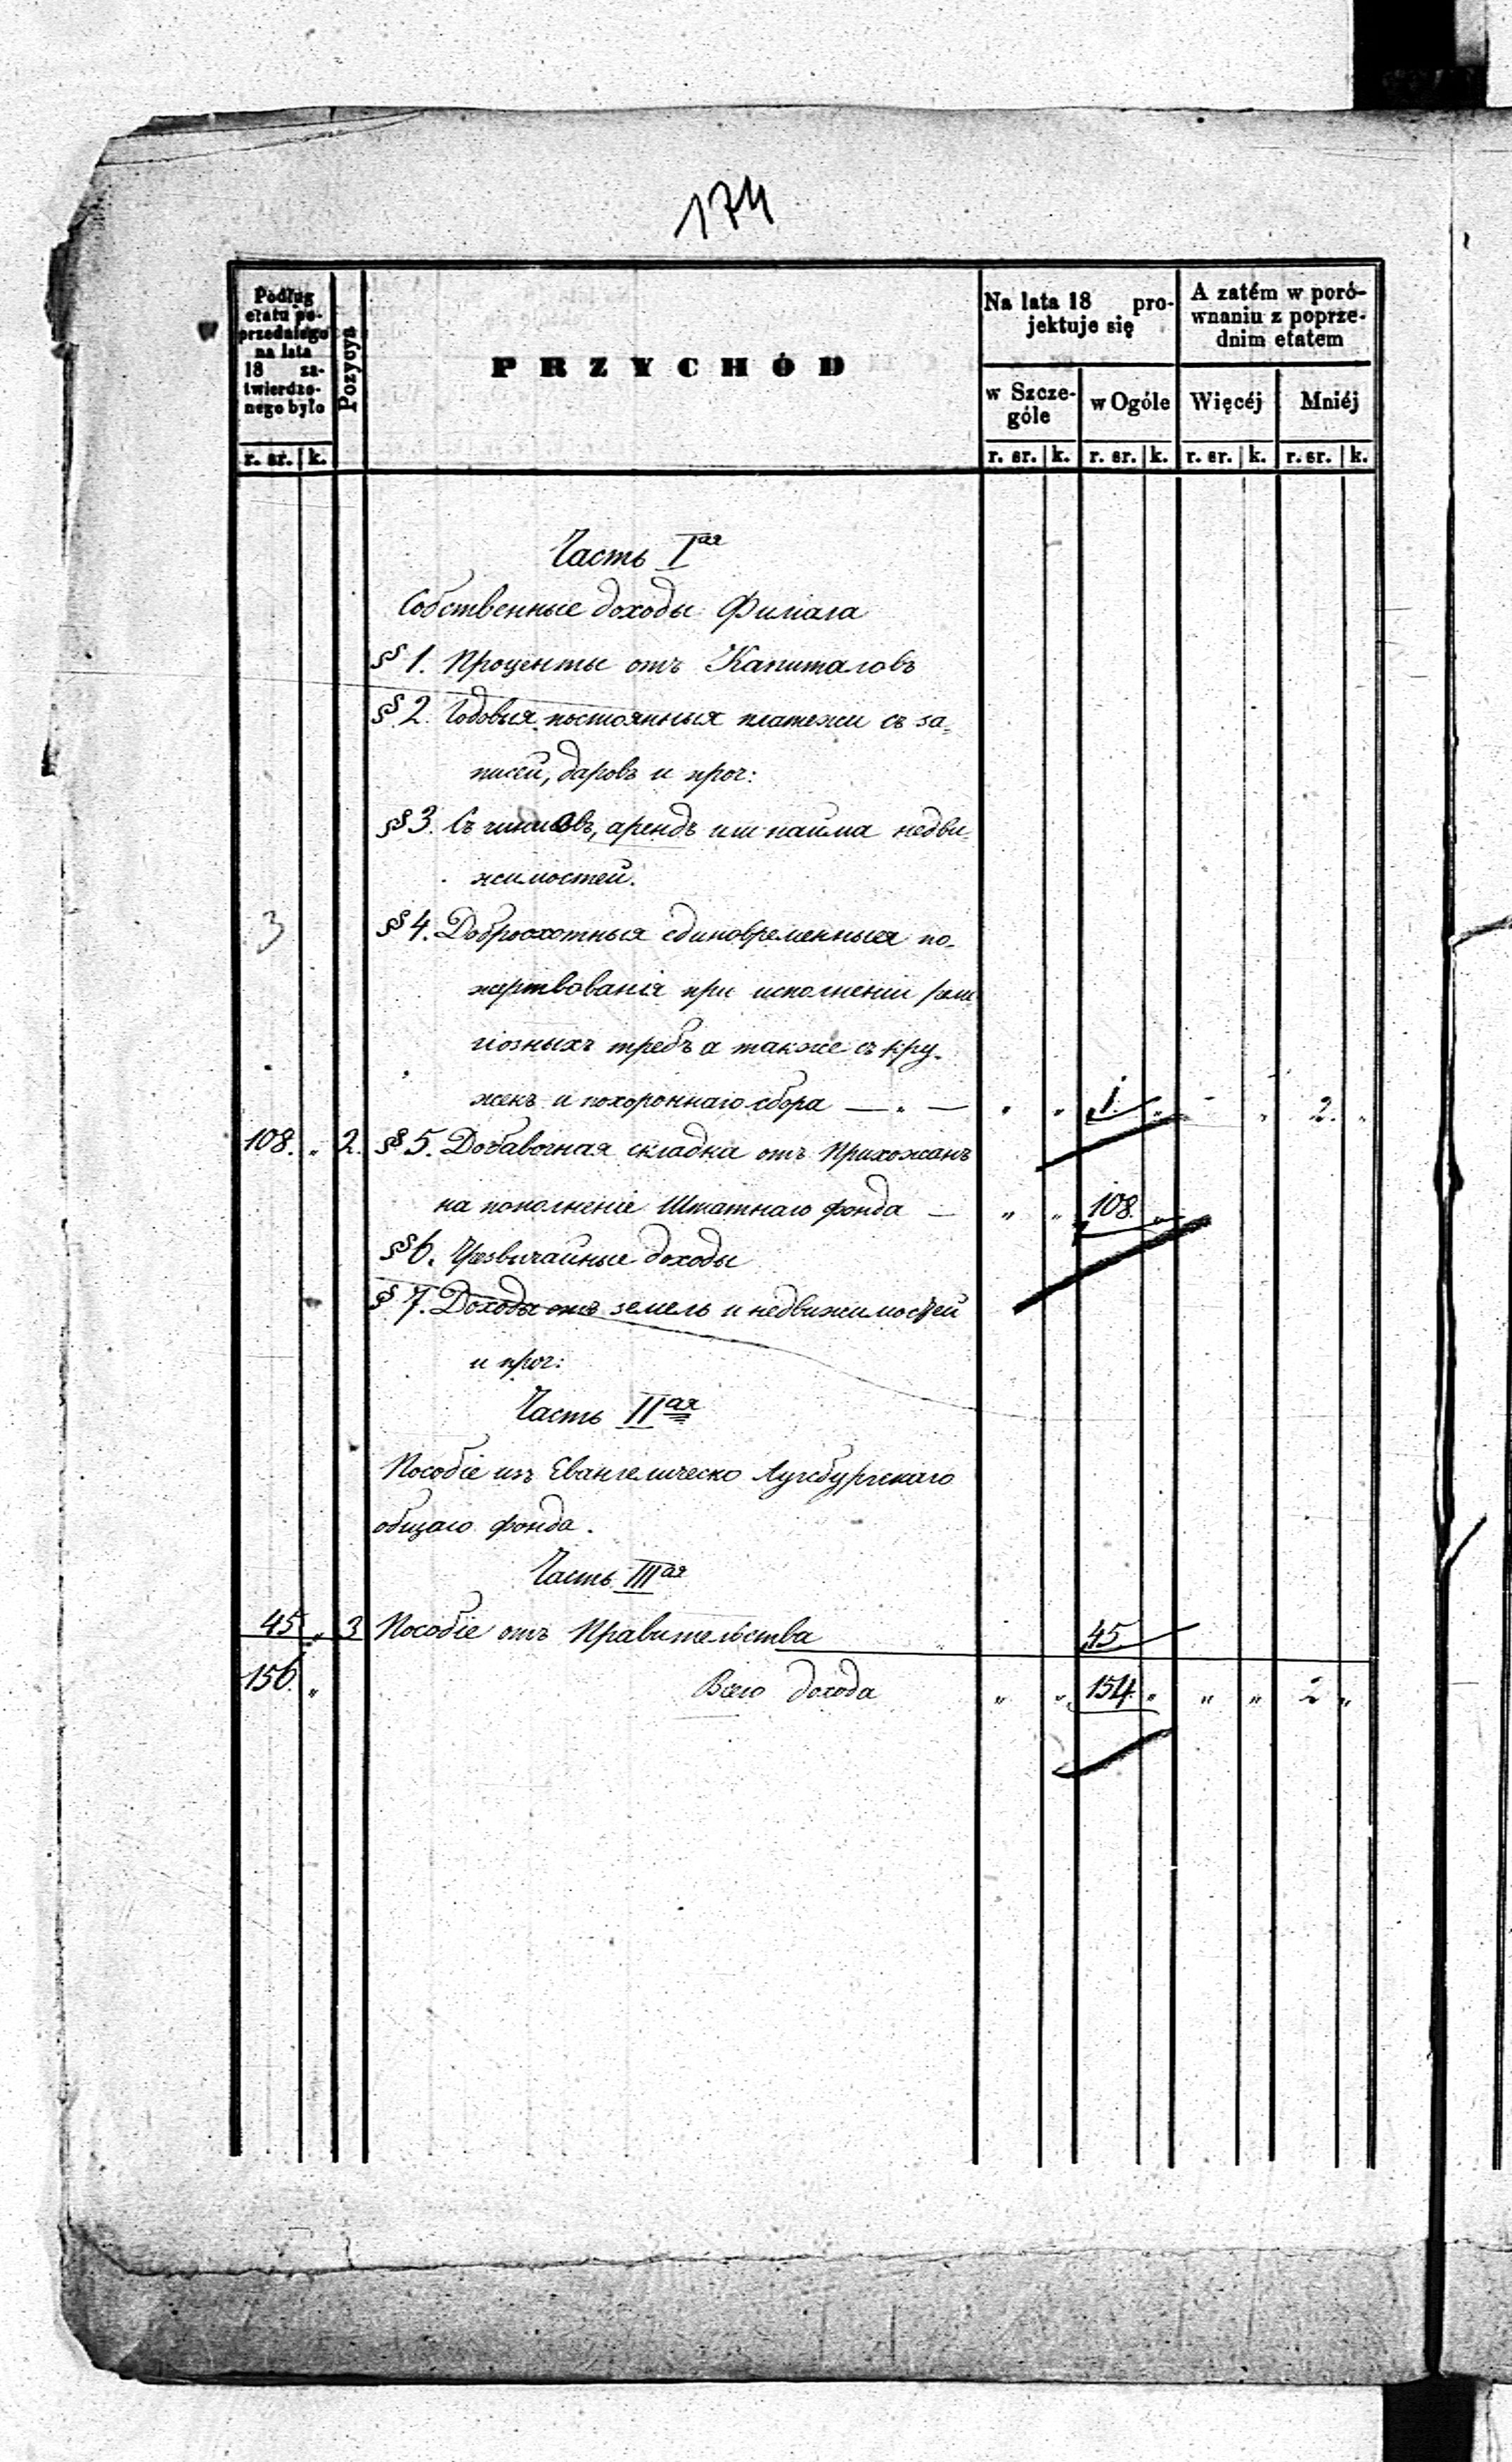 174
Podług
etatu po-
przedniego
na lata
18 za-
twierdzo-
nego było
r. sr. k.
Pozycya
PRZYCHÓD
Na lata 18 pro-
jektuje się
w Szcze-
góle
r. sr. k.
w Ogóle
r. sr. k.
A zatém w poró-
wnaniu z poprze-
dnim etatem
Więcéj
r. sr. k.
Mniéj
r. sr. k.
Часть Iая
Собственные доходы Филиала
§§ 1. Проценты отъ Капиталовъ
§§ 2. Годовыя постоянныя платежи съ за=
писей, даровъ и проч:
§§ 3. Съ чиншовъ, арендъ или найма недви=
жимостей.
3 §§ 4. Доброохотныя единовременныя по-
жертвованія при исполненіи рели
гіозныхъ требъ а также съ кру-
жекъ и похороннаго сбора — „ — „ „ 1. „ - „ 2. „
108. „ 2. §§ 5. Добавочная складка отъ Прихожанъ
на пополненіе Штатнаго фонда — „ „ 108. „
§§ 6. Чрезвычайные доходы
§ 7. Доходы отъ земель и недвижимостей
и проч:
Часть IIая
Пособіе изъ Евангелическо Аугсбургскаго
общаго фонда.
Часть IIIая
45 „ 3 Пособіе отъ Правительства 45.
156. „ Всего дохода „ „ 154. „ „ „ 2 „